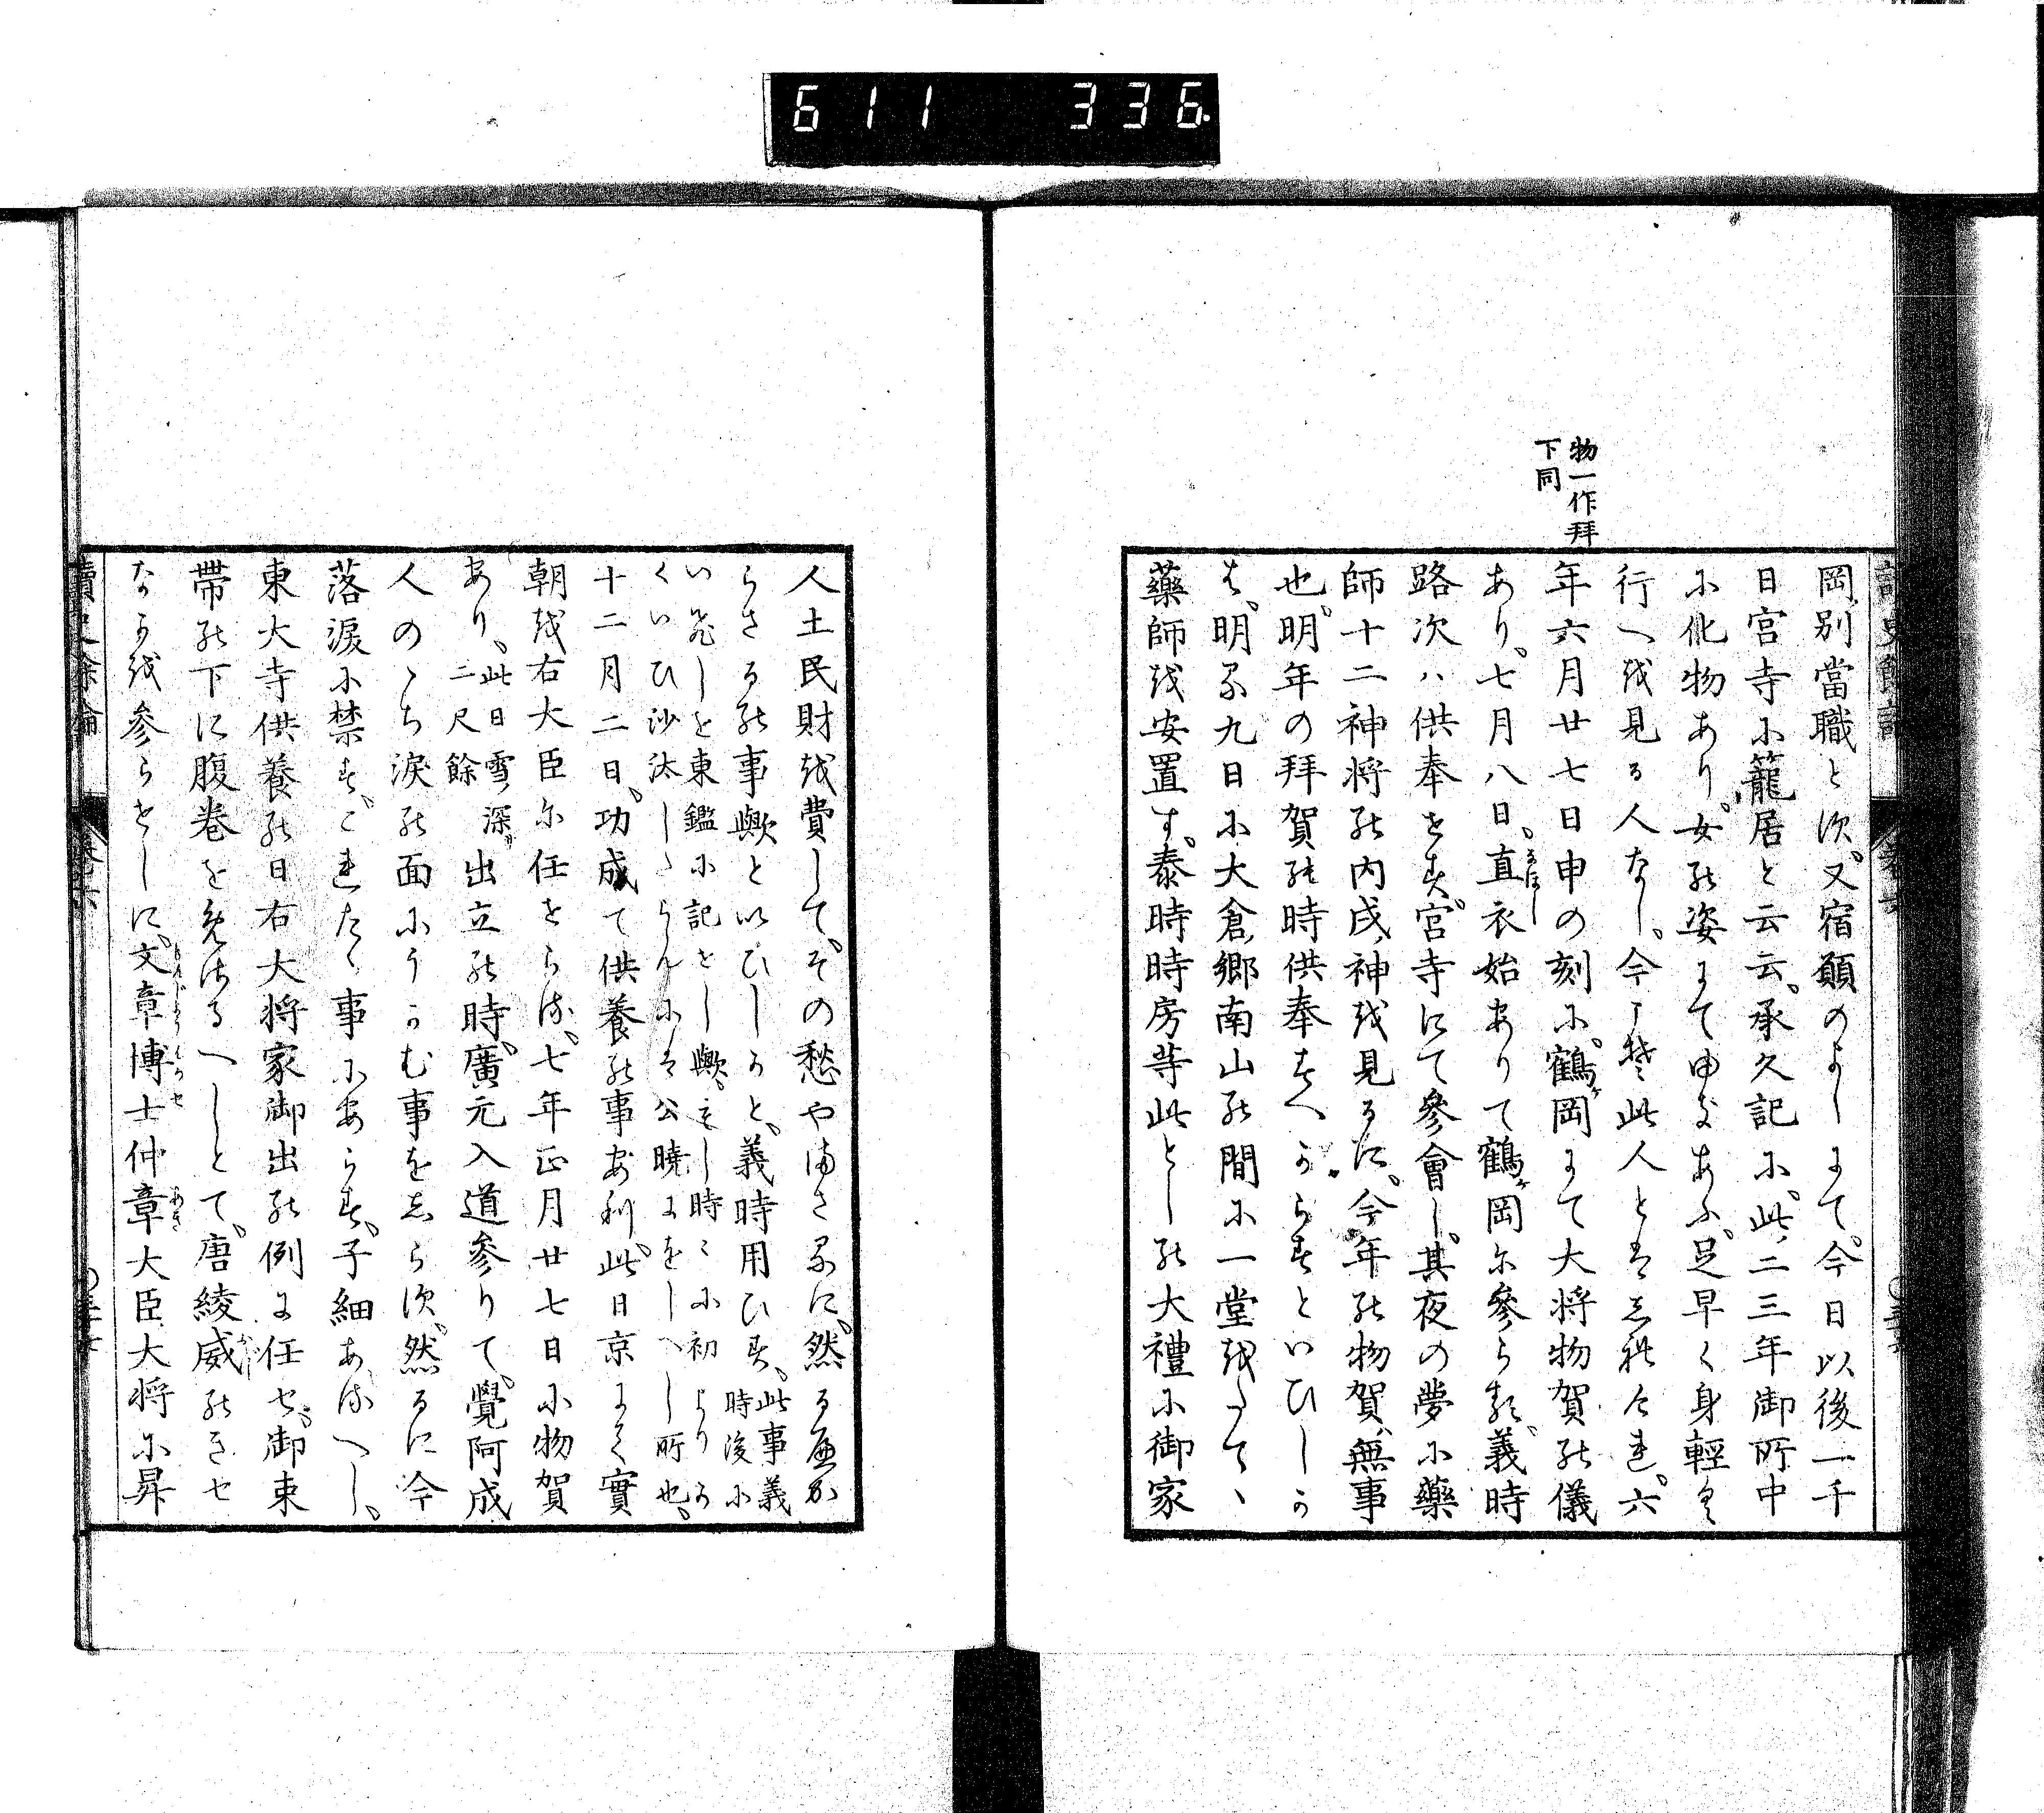 611 336
物一作拜
下同
岡別當職とす、又宿願のよしにて、今日以後一千
日宮寺に籠居と云云。承久記に、此二三年御所中
に化物あり。女の姿にて申かあふ、足早く身輕く
行へを見る人なし。今こそ此人とはしりけれ。六
年六月廿七日申の刻に、鶴ヶ岡にて大将物賀の儀
あり、七月八日、直衣始ありて鶴ヶ岡に參らる、義時
路次ハ供奉をす、宮寺にて參會し、其夜の夢に藥
師十二神将の内戌神を見るに、今年の物賀、無事
也、明年の拜賀の時供奉すへからすといひしか
は、明る九日に大倉郷南山の間に一堂をたてヽ、
藥師を安置す。泰時時房等此としの大禮に御家
讀史餘論
人土民財を費して、その愁やまさるに、然るへか
らさるの事歟といひしかと、義時用ひす、此事義時後に
いひしを東鑑に記せし歟、もし時々に初よりか
くいひ沙汰したらんには公曉にをしへし所也、
十二月二日、功成て供養の事あり、此日京にて實
朝を右大臣に任せらる、七年正月廿七日に物賀
あり、此日雪深二尺餘出立の時、廣元入道參りて、覺阿成
人のゝち涙の面にうかむ事をしらす、然るに今
落涙に禁す、これたゝ事にあらす、子細あるへし、
東大寺供養の日右大将家御出の例に任せ、御束
帶の下に腹巻を着けるへしとて、唐綾威のきせ
なかを参らせしに、文章博士仲章大臣大将に昇
讀史餘論 卷六